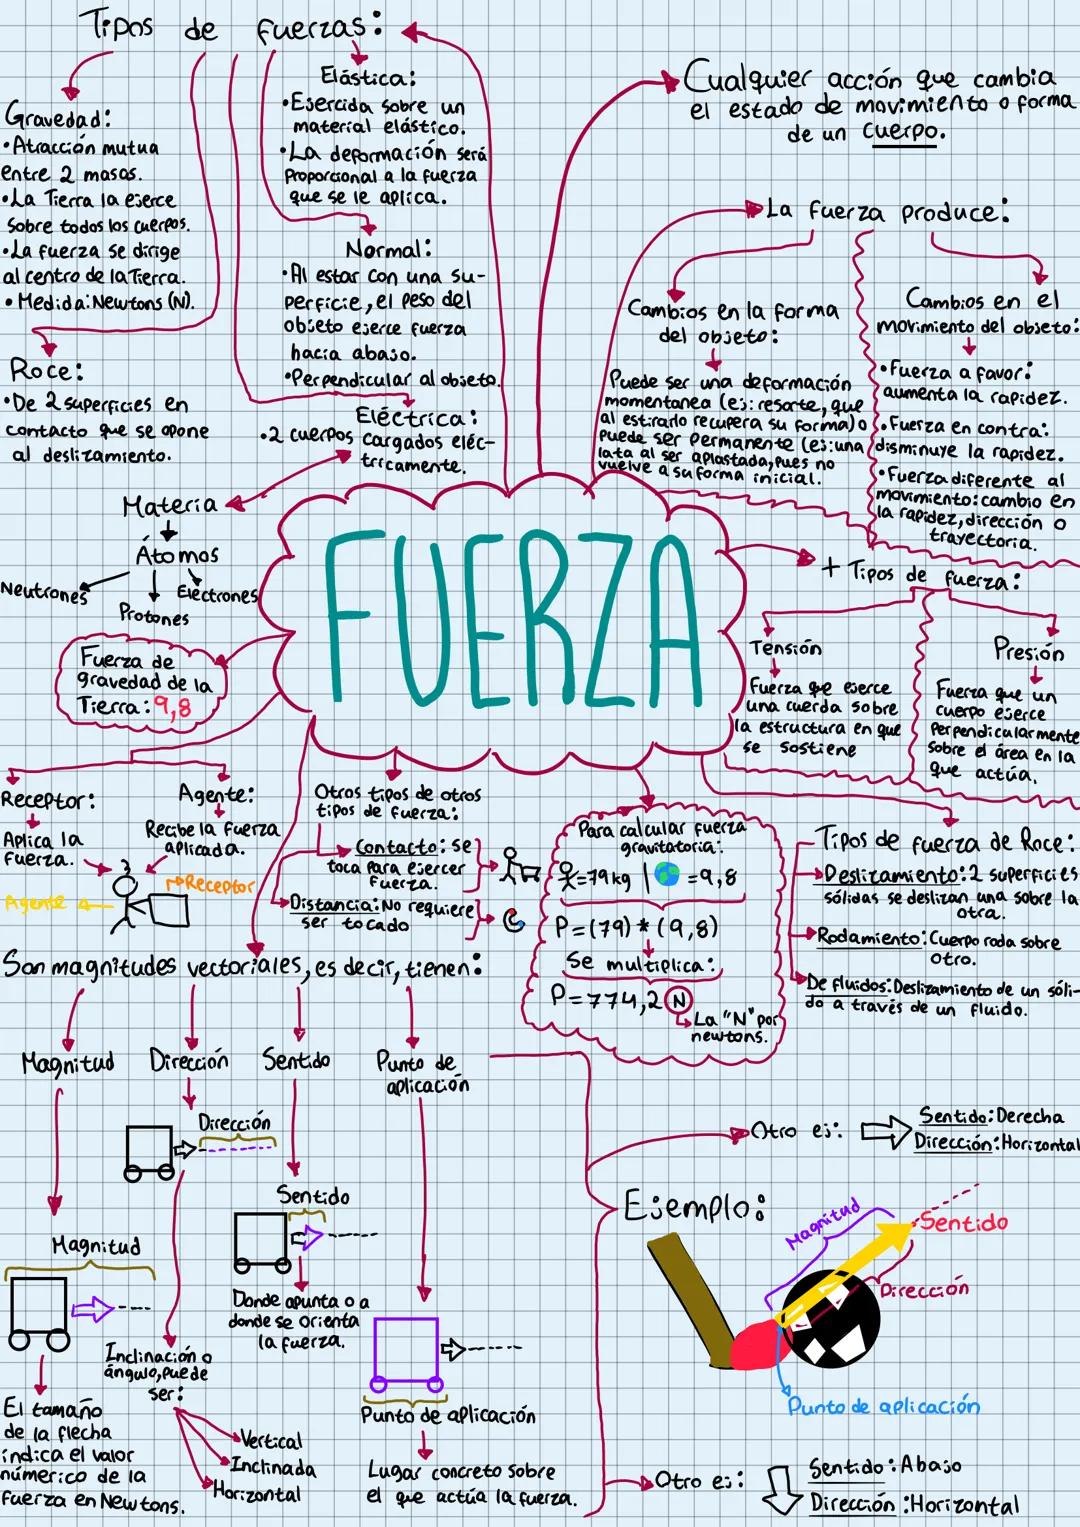 Tipos de fuerzas:
Gravedad:
•Atracción mutua
entre 2 masas.
•La Tierra la ejerce
sobre todos los cuerpos.
•La fuerza se dirige
al centro de la Tierra.
•Medida: Newtons (N).
Roce:
•De 2 superficies en
contacto que se opone
al deslizamiento.
Elástica:
•Ejercida sobre un
material elástico.
•La deformación será
proporcional a la fuerza
que se le aplica.
Normal:
•Al estar con una su-
perficie, el peso del
objeto ejerce fuerza
hacia abajo.
•Perpendicular al objeto.
Eléctrica:
•2 cuerpos cargados eléc-
tricamente.
Materia
Átomos
Neutrones
Protones
Electrones
Cualquier acción que cambia
el estado de movimiento o forma
de un cuerpo.
La fuerza produce:
Cambios en la forma
del objeto:
Puede ser una deformación
momentanea (ej: resorte, que
al estirarlo recupera su forma) o
puede ser permanente (ej: una
lata al ser aplastada, pues no
vuelve a su forma inicial.
Cambios en el
movimiento del objeto:
•Fuerza a favor:
aumenta la rapidez.
•Fuerza en contra:
disminuye la rapidez.
•Fuerza diferente al
movimiento: cambio en
la rapidez, dirección o
trayectoria.
FUERZA
+ Tipos de fuerza:
Tensión
Fuerza que ejerce
una cuerda sobre
la estructura en que
se sostiene
Presión
Fuerza que un
cuerpo ejerce
perpendicularmente
sobre el área en la
que actúa.
Fuerza de
gravedad de la
Tierra: 9,8
Receptor:
Aplica la
fuerza.
Agente:
Recibe la fuerza
aplicada.
Receptor
Agente
Otros tipos de otros
tipos de fuerza:
Contacto: se
toca para ejercer
fuerza.
Distancia: No requiere
ser tocado
Para calcular fuerza
gravitatoria:
=79 kg | =9,8
P=(79)*(9,8)
Se multiplica:
P=774,2 N
La "N" por
newtons.
Tipos de fuerza de Roce:
Deslizamiento: 2 superficies
sólidas se deslizan una sobre la
otra.
Rodamiento: Cuerpo roda sobre
otro.
De fluidos: Deslizamiento de un sóli-
do a través de un fluido.
Son magnitudes vectoriales, es decir, tienen:
Magnitud
Dirección
Sentido
Punto de
aplicación
Dirección
Sentido
Magnitud
Donde apunta o a
donde se orienta
la fuerza.
Inclinación o
ángulo, puede
ser:
Vertical
Inclinada
Horizontal
El tamaño
de la flecha
indica el valor
númerico de la
fuerza en Newtons.
Punto de aplicación
Lugar concreto sobre
el que actúa la fuerza.
Otro ej:
Sentido: Derecha
Dirección: Horizontal
Ejemplo:
Magnitud
Sentido
Dirección
Punto de aplicación
Otro ej:
Sentido: Abajo
Dirección: Horizontal